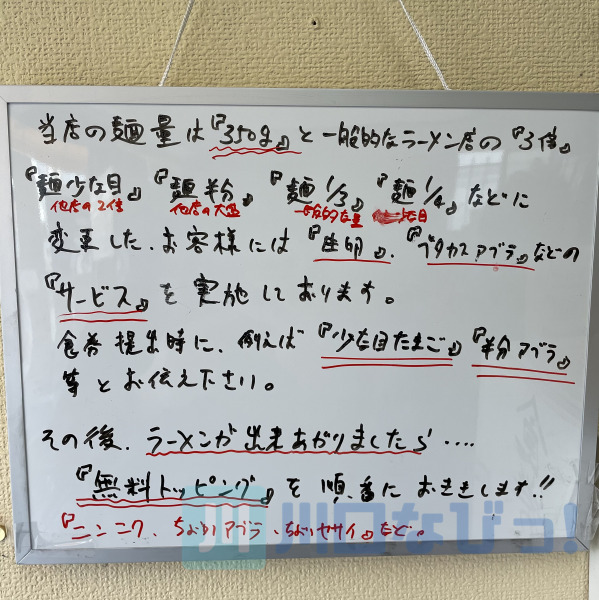 当店の麺量は『350g』と一般的なラーメン店の『3倍』
『麺少な目』『麺半分』『麺1/3』『麺1/4』などに
他店の2倍 他店の大盛 一般的な量 少な目
変更した、お客様には『生卵』、『ブタカスアブラ』などの
『サービス』を実施しております。
食券提出時に、例えば『少な目たまご』『半分アブラ』
等とお伝え下さい。
その後、ラーメンが出来あがりましたら‥‥
『無料トッピング』を順番におききします!!
『ニンニク、ちょいアブラ、ちょいヤサイ』など。
川口なびっ!